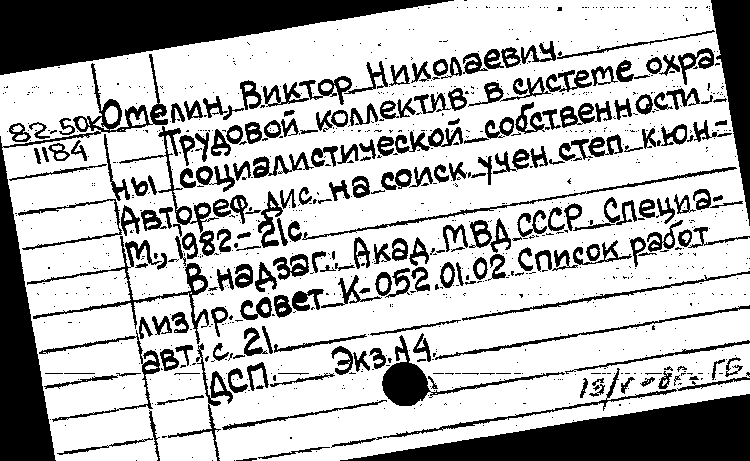 82-50К Омелин, Виктор Николаевич.
1184 Трудовой коллектив в системе охра-
ны социалистической собственности:
Автореф. дис. на соиск. учен. степ. к.ю.н.-
М., 1982.- 21с.
В надзаг.: Акад. МВД СССР. Специа-
лизир. совет К-052.01.02. Список работ
авт.: с. 21.
ДСП. Экз. №4.
13/V-82. ГБ.